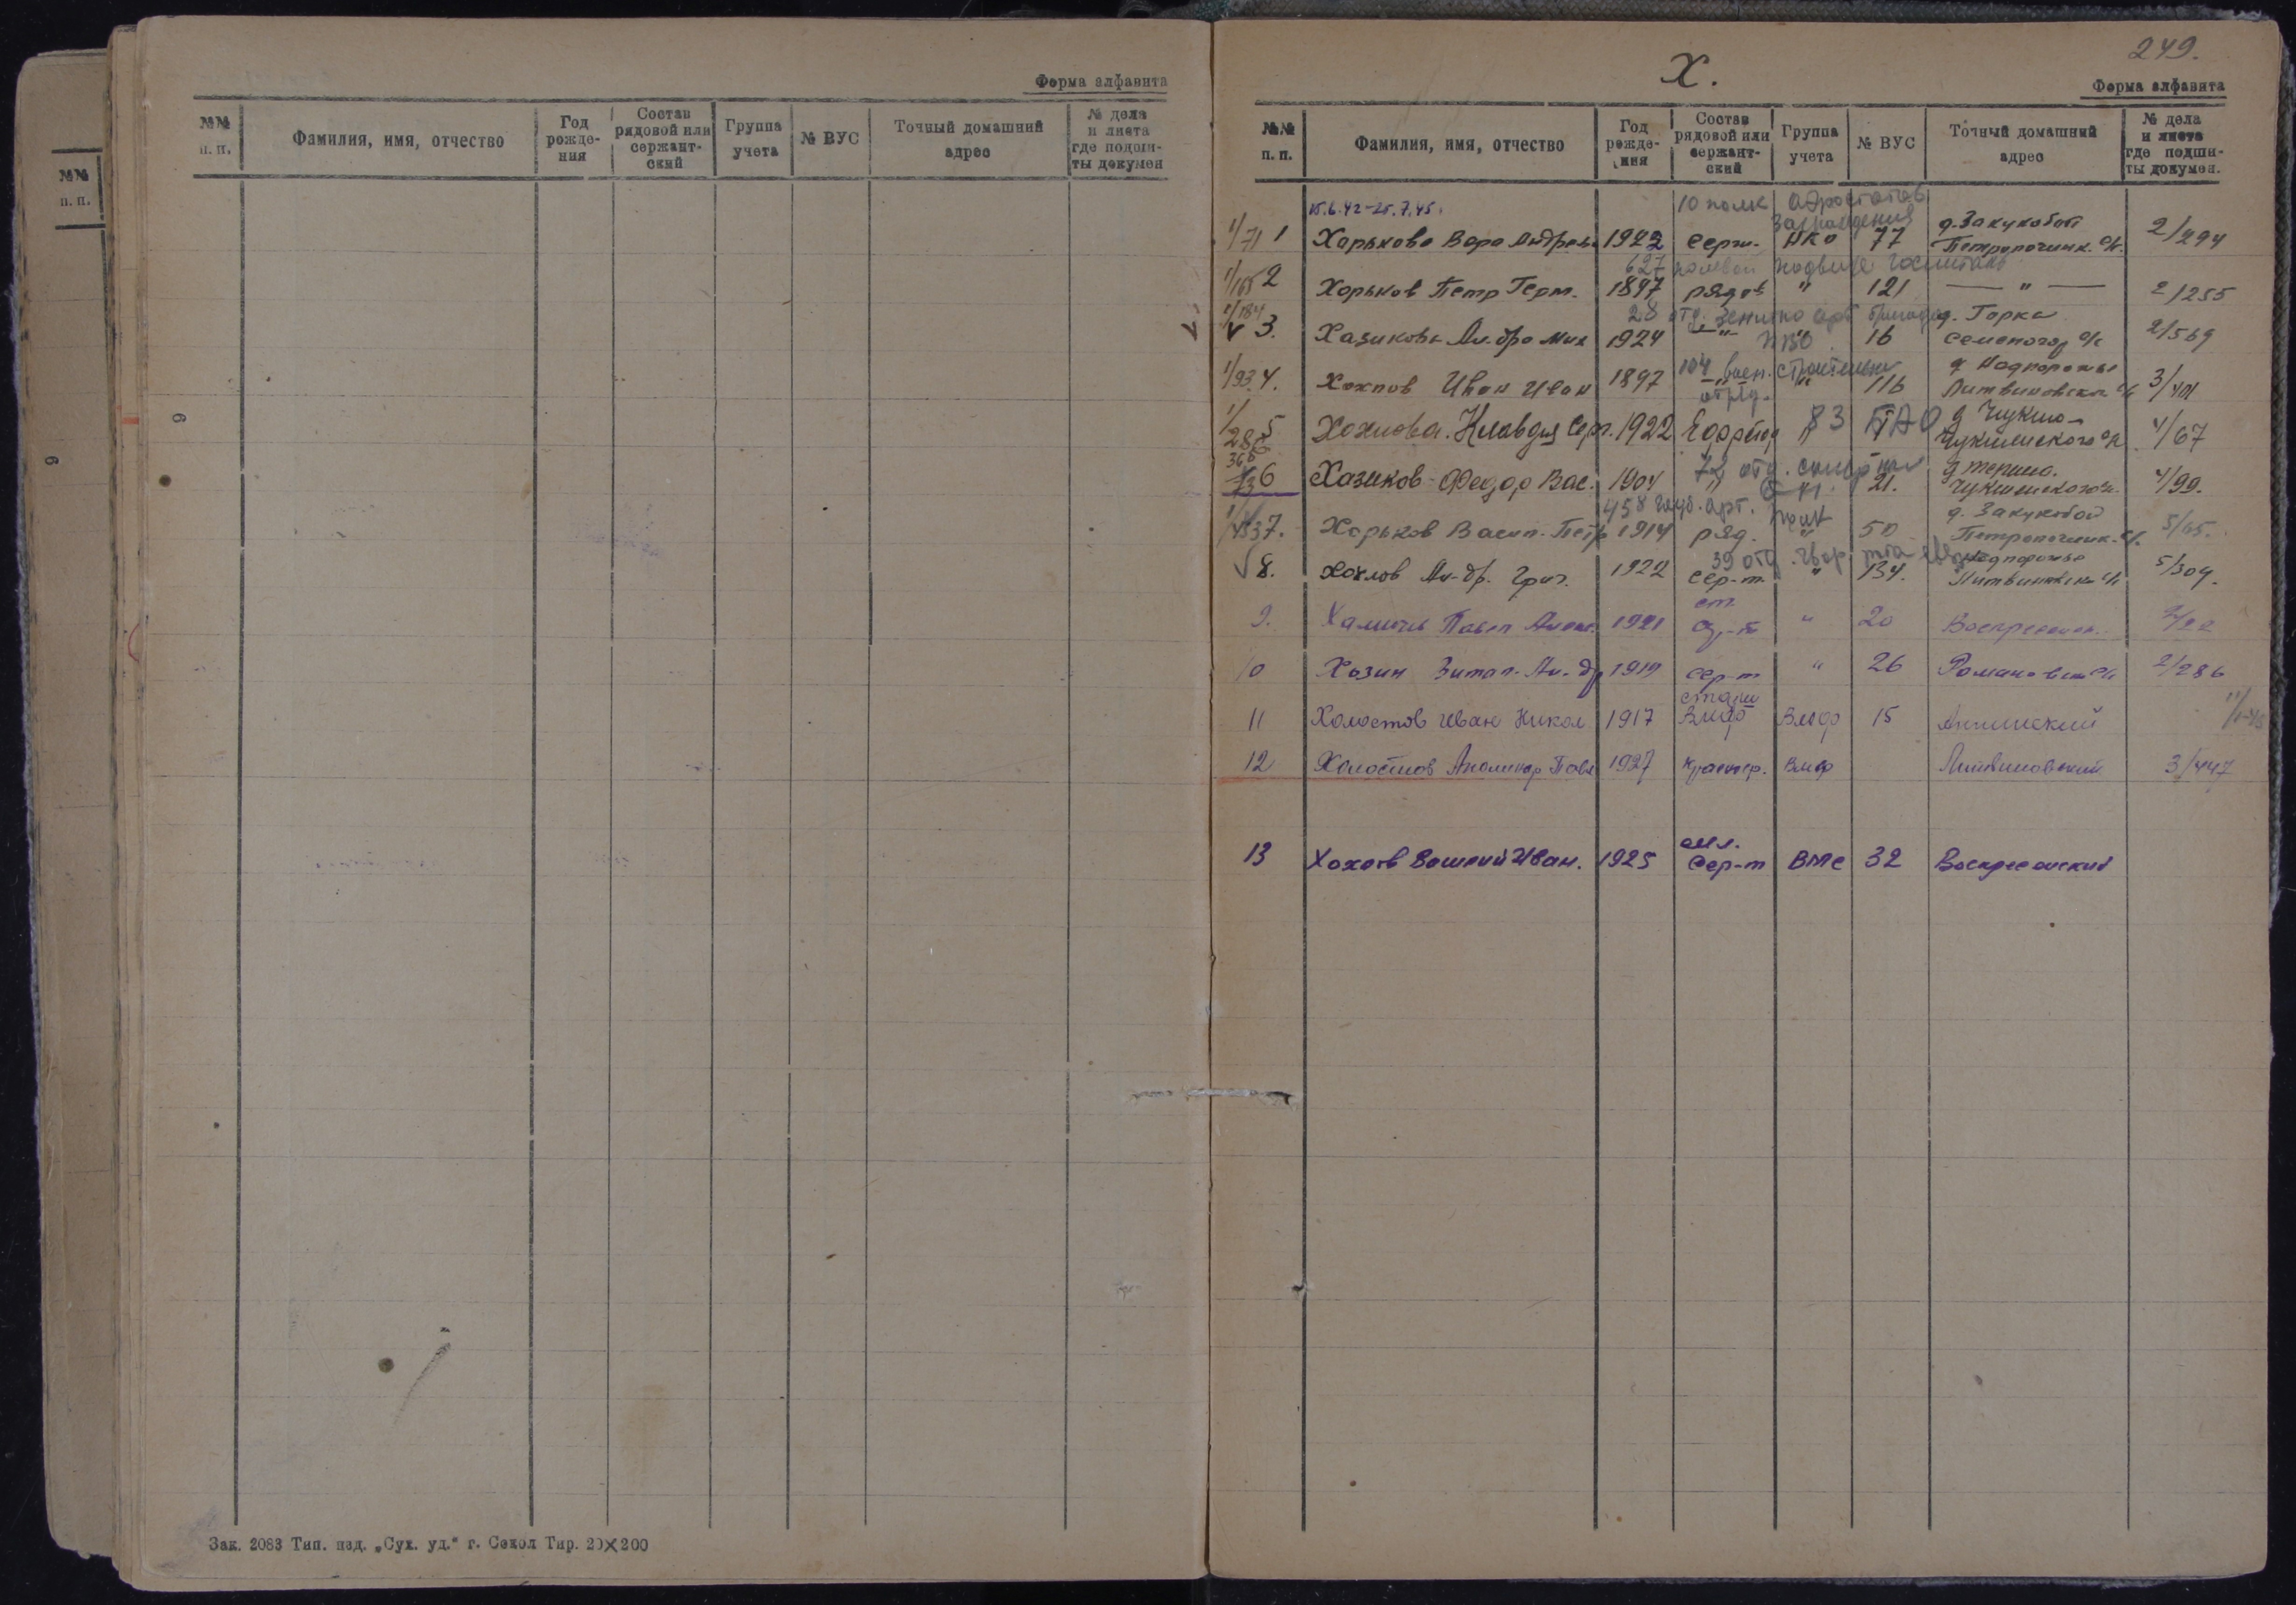 Форма алфавита
№№ п. п. Фамилия, имя, отчество Год рожде- ния Состав рядовой или сержант- ский Группа учета № ВУС Точный домашний адрес № дела и листа где подши- ты докумен
№№ п. п.
6
6
Зак. 2083 Тип. изд. „Сух. уд.“ г. Сокол Тир. 20×200
249.
Х.
Форма алфавита
№№ п. п. Фамилия, имя, отчество Год рожде- ния Состав рядовой или сержант- ский Группа учета № ВУС Точный домашний адрес № дела и листа где подши- ты докумен.
15.6.42-25.7.45. 10 полк аэростатов заграждения
1/71 1 Харькова Вера Андреев 1922 серж. НКО 77 д. Закукобой Петропочинк. с/с. 2/294
627 полевой подвиж госпиталь
1/165 2 Хорьков Петр Герм. 1897 рядов " 121 — " — 2/255
1/184 28 отд. зенитно арт бригада
v 3. Хазикова Ал-дра Мих 1924 — " — ПВО 16 д. Горка Семеногор с/с 2/569
104 воен. строительн отряд.
1/93 4. Хохлов Иван Иван 1897 " " 116 д Надпорожье Литвиновск с/с 3/401
1/286 5 Хохлова Клавдия Сер. 1922 Ефрейтор " 83 ГАО д Чукша Чукшинского с/с 4/67
366 72 отд.
6 Хазиков Федор Вас. 1904 " 21. Чукшинского с/с. 4/99.
458 арт. полк
7. Харьков Васил. Петр 1914 ряд. " 50 д. Закукобой Петропочинк. с/с. 5/65.
39 отд.
√ 8. Хохлов Ал-др. Григ. 1922 сер-т " 134. Надпорожье Литвиновск с/с 5/309.
9. Павел Алекс. 1921 ст с-т " 20 Воскресенск. 2/22
10 Хазин Витал. Ал-др 1919 сер-т " 26 Романовск с/с 2/286
11 Холостов Иван Никол. 1917 старш ВМФ 15 Анненский
12 Холостов Аполинар Павл 1927 краснофр. ВМФ Литвиновский 3/447
13 Хохлов Иван. 1925 мл. сер-т ВМС 32 Воскресенский